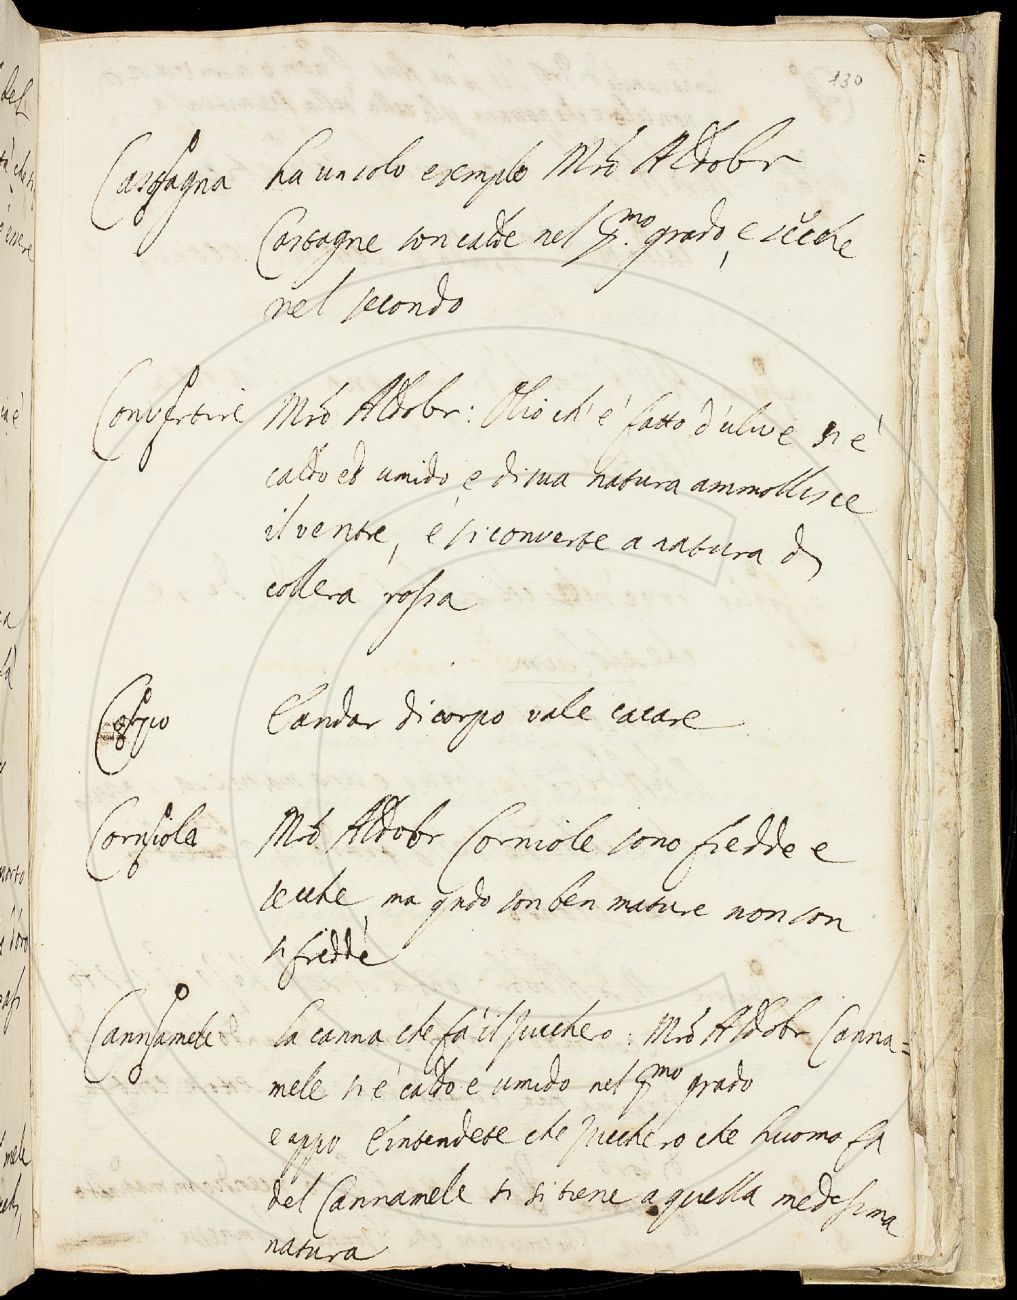 130
Castagna ha un solo exemplo Mrõ Aldobr
Castagne son calde nel p.mo grado, e secche
nel secondo
Convertire Mrõ Aldobr: Olio ch' e' fatto d'ulive si e'
caldo ed umido, e di sua natura ammollisce
il ventre, e si converte a natura di
collera rossa
Corpo l'andar di corpo vale cacare
Corniola Mrõ Aldobr Corniole sono fredde e
secche, ma qndo son ben mature non son
si fredde
Cannamele la canna che fa' il zucchero: Mrõ Aldobr Canna=
mele si e' caldo e umido nel p.mo grado
e appo l'intendete che zucchero che huomo fa
del Cannamele si si tiene a quella medesima
natura